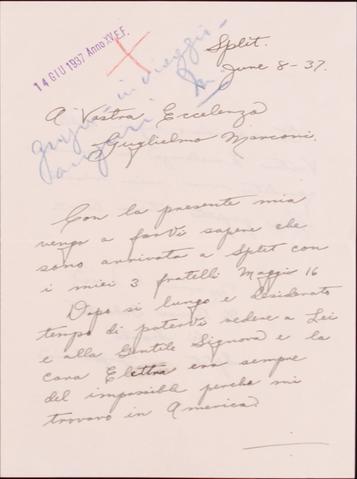 14 GIU 1937 Anno XV E.F.
Split.
June 8-37.
in viaggio
A Vostra Eccelenza
Guglielmo Marconi.
Con la presente mia
vengo a farvi sapere che
sono arrivata a Split con
i miei 3 fratelli Maggio 16
Dopo si lungo e desiderato
tempo di potervi vedere a Lei
e alla Gentile Signora e la
cara Elettra era sempre
del impossible perche mi
trovavo in America.